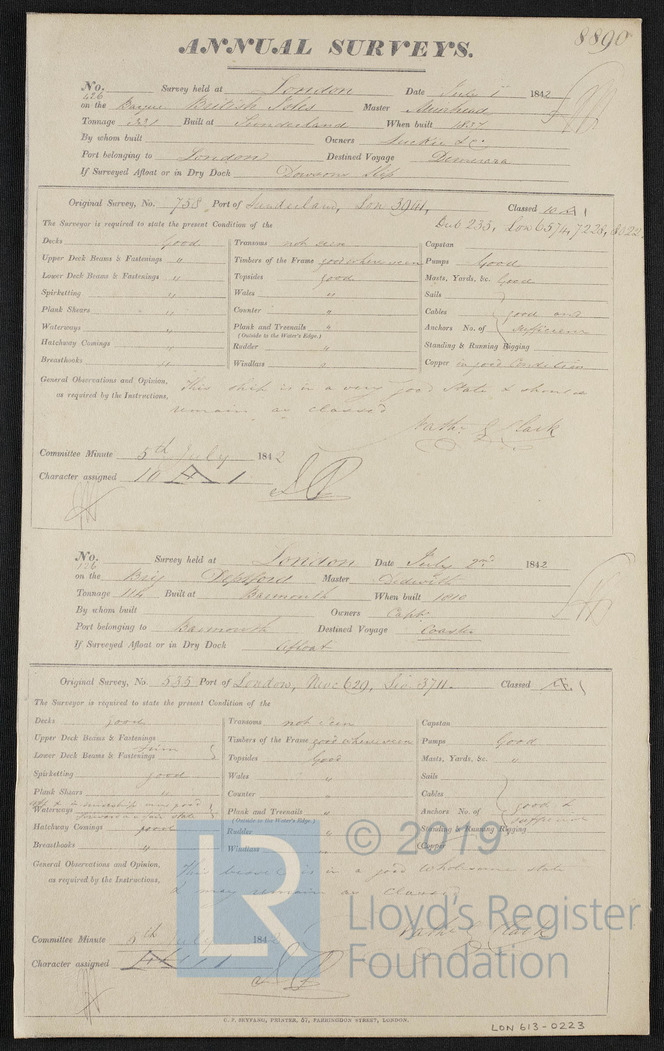 8890
ANNUAL SURVEYS.
No. 426 Survey held at London Date July 1 1842
on the Barque British Isles Master Muirhead
Tonnage 331 Built at Sunderland When built 1837
By whom built Owners
Port belonging to London Destined Voyage Demerara
If Surveyed Afloat or in Dry Dock Dowsons Slip
Original Survey, No. 758 Port of Sunderland, Lon 3941, Classed 10 A 1
The Surveyor is required to state the present Condition of the Dub 235, Lon 6574, 7223, 8022
Decks good Transoms not seen Capstan
Upper Deck Beams & Fastenings " Timbers of the Frame good where seen Pumps Good
Lower Deck Beams & Fastenings " Topsides good Masts, Yards, &c. Good
Spirketting " Wales " Sails
Plank Shears " Counter " Cables good and
Waterways " Plank and Treenails " Anchors No. of sufficient
(Outside to the Water's Edge.)
Hatchway Comings " Rudder " Standing & Running Rigging
Breasthooks " Windlass " Copper in good Condition
General Observations and Opinion, This ship is in a very good state & should
as required by the Instructions, remain as classed
Nathl G Clark
Committee Minute 5th July 1842
Character assigned 10 A 1
No. 126 Survey held at London Date July 2nd 1842
on the Brig Deptford Master
Tonnage 114 Built at Barmouth When built 1810
By whom built Owners Capt
Port belonging to Barmouth Destined Voyage Coaster
If Surveyed Afloat or in Dry Dock Afloat
Original Survey, No. 535 Port of London, Newc 629, Liv 3711. Classed Æ 1
The Surveyor is required to state the present Condition of the
Decks good Transoms not seen Capstan
Upper Deck Beams & Fastenings Timbers of the Frame good where seen Pumps Good
Lower Deck Beams & Fastenings firm Topsides Good Masts, Yards, &c. "
Spirketting good Wales " Sails
Plank Shears " Counter " Cables good &
Waterways Plank and Treenails " Anchors No. of sufficient
(Outside to the Water's Edge.)
Hatchway Comings good Rudder " Standing & Running Rigging
Breasthooks " Windlass " Copper
General Observations and Opinion, This vessel is in a good wholesome state
as required by the Instructions, & may remain as Classed
Nathl G Clark
Committee Minute 5th July 1842
Character assigned Æ 1
C. F. SEYFANG, PRINTER, 57, FARRINGDON STREET, LONDON.
LON 613-0223
LR
© 2019
Lloyd's Register
Foundation